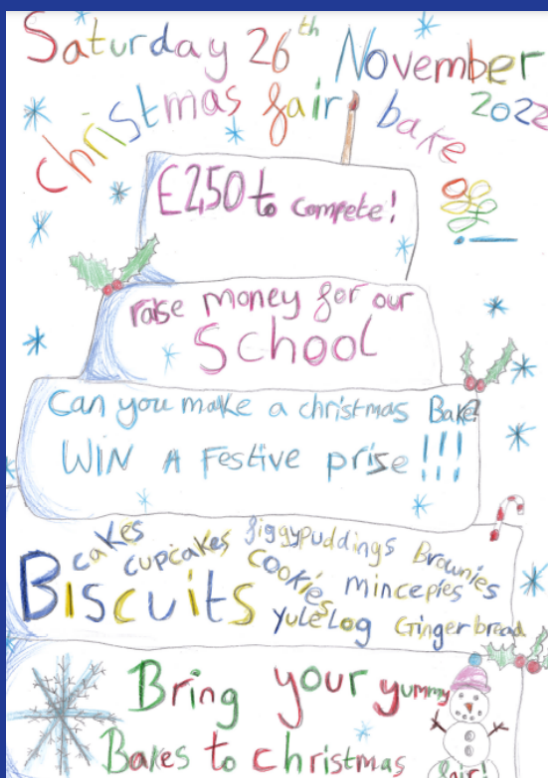 Saturday 26th November
2022
christmas fair bake
off!
£2,50 to compete!
raise money for our
School
Can you make a christmas Bake?
WIN A Festive prise!!!
cakes
cupcakes
figgypuddings
Brownies
Biscuits
cookies
mincepies
yulelog
Gingerbread
Bring your yummy
Bakes to christmas fair!